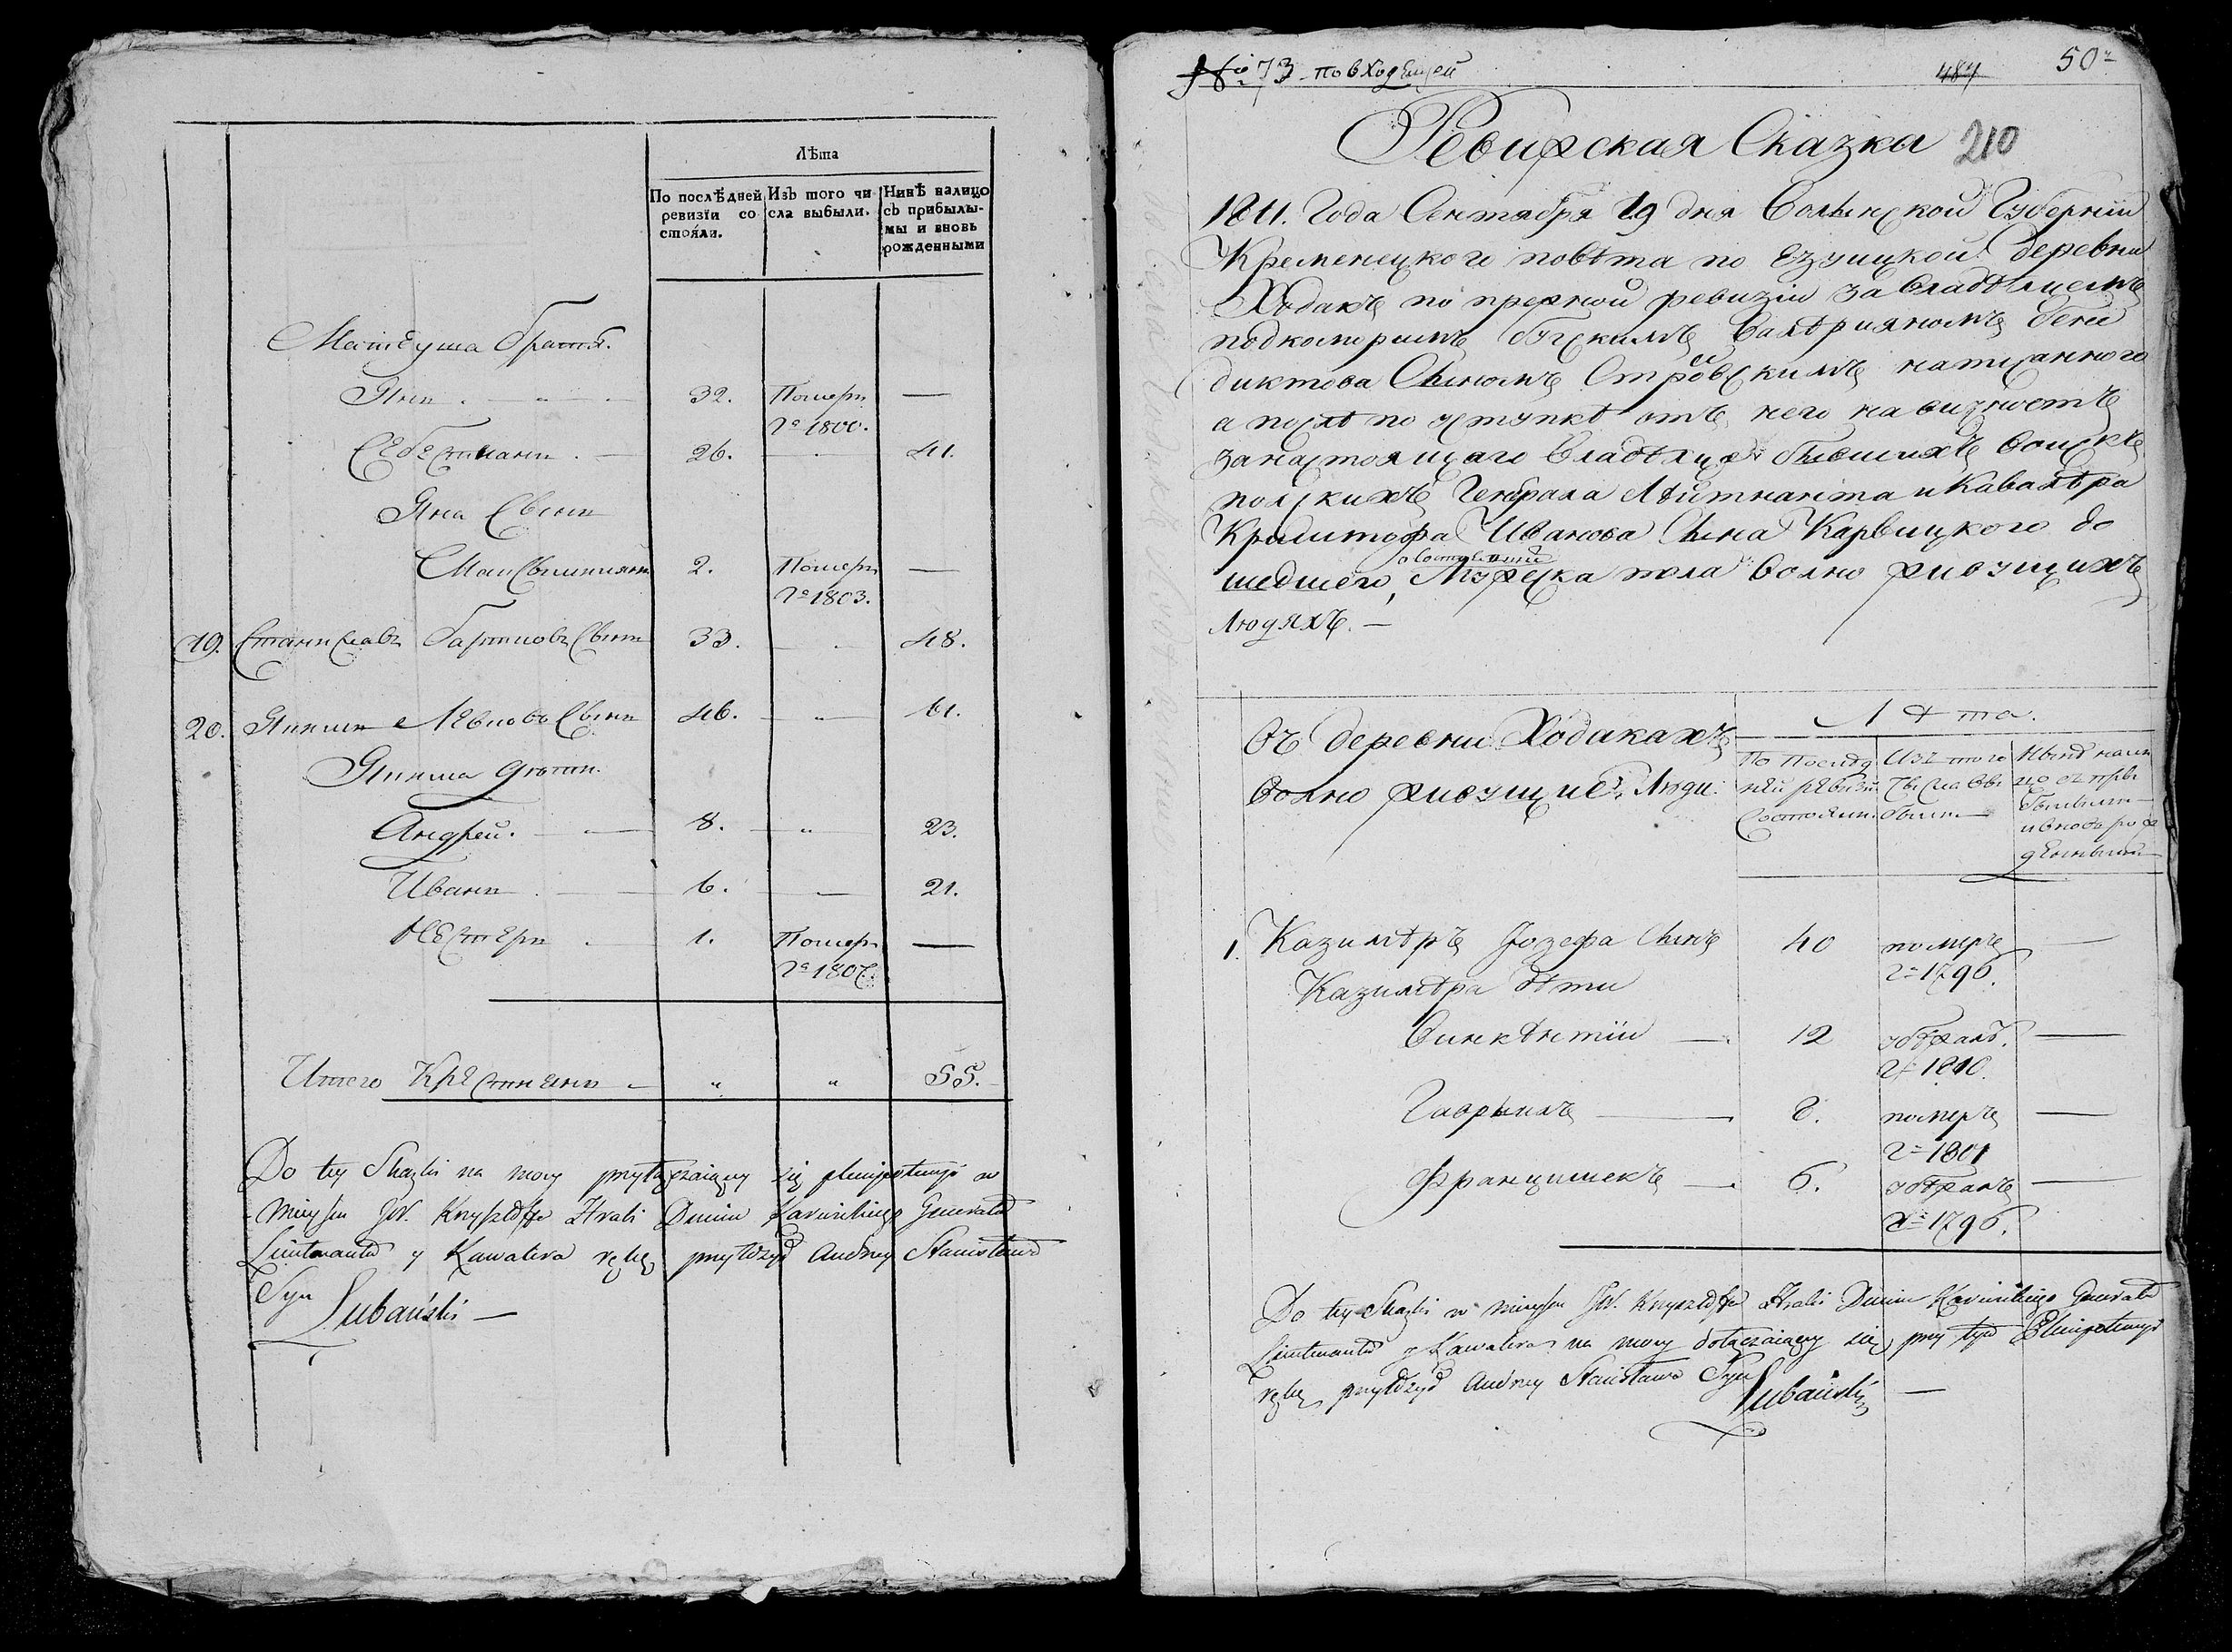 Лѣта
По послѣдней ревизіи состояли.
Изъ того числа выбыли.
Нинѣ налицо съ прибылыми и вновь рожденными
Матеуша братя.
Янъ 32. Померъ —
го 1800.
Себестианъ 26. — 41.
Яна Сынъ
Максымилиянъ 2. Померъ —
го 1803.
19. Станиславъ Сынъ 33. — 48.
20. Якимъ Сынъ 46. — 61.
Якима дѣти
Андрей. 8. " 23.
Иванъ 6. — 21.
Нестеръ 1. Померъ —
Итого Крестиянъ " " 55.
Do tey Skazki na mocy przytączaiącey się plenipotencyi w
Mieyscu JW. Krysztoffa Hrabi Dunin Karwickiego Generała
Lieutnanta y Kawalera rękę przyłożył Andrzey Stanisława
Syn
Lubański —
№ 73 по входящей 484 50
Ревижская Сказка 210
1811. года Сентября 19 дня Волынской Губерніи
Кременецкого повѣта по Езуицкой деревни
Ходакъ по прежной ревизіи за владѣлцемъ
подкоморимъ Бускимъ Валѣрияномъ Бене
диктова Сыномъ Стройовскимъ написанного
а послѣ по уступкѣ отъ него на вичность
за настоящаго владѣлца бывшихъ войскъ
полскихъ Генерала Лейтнанта и Кавалѣра
Криштофа Иванова Сына Карвицкого до
шедшего, о состоящий Мужеска пола волно живущихъ
людяхъ. —
Въ деревни Ходаках
волно живущие люди:
Лѣта.
По последней ревизи состояли.
Изъ того числа выбыли
Нынѣ налицо съ прибылыми и вновь рожденными
1. Казимѣръ Іозефа Сынъ 40 померъ —
го 1796.
Казимѣра дѣти
Винкѣнтіи — 12 збѣжалъ. —
го 1810.
Гаврыилъ — 8. померъ —
го 1801
Францишекъ — 6. збѣжалъ —
го 1796.
Do tey Skazki w mieyscu JW. Krysztoffa Hrabi Dunin Karwickiego Generała
Lieutnanta y Kawalera na mocy dołączaiącey się przy tym Plenipotencyi
rękę przyłożył Andrzey Stanisława Syn
Lubański —